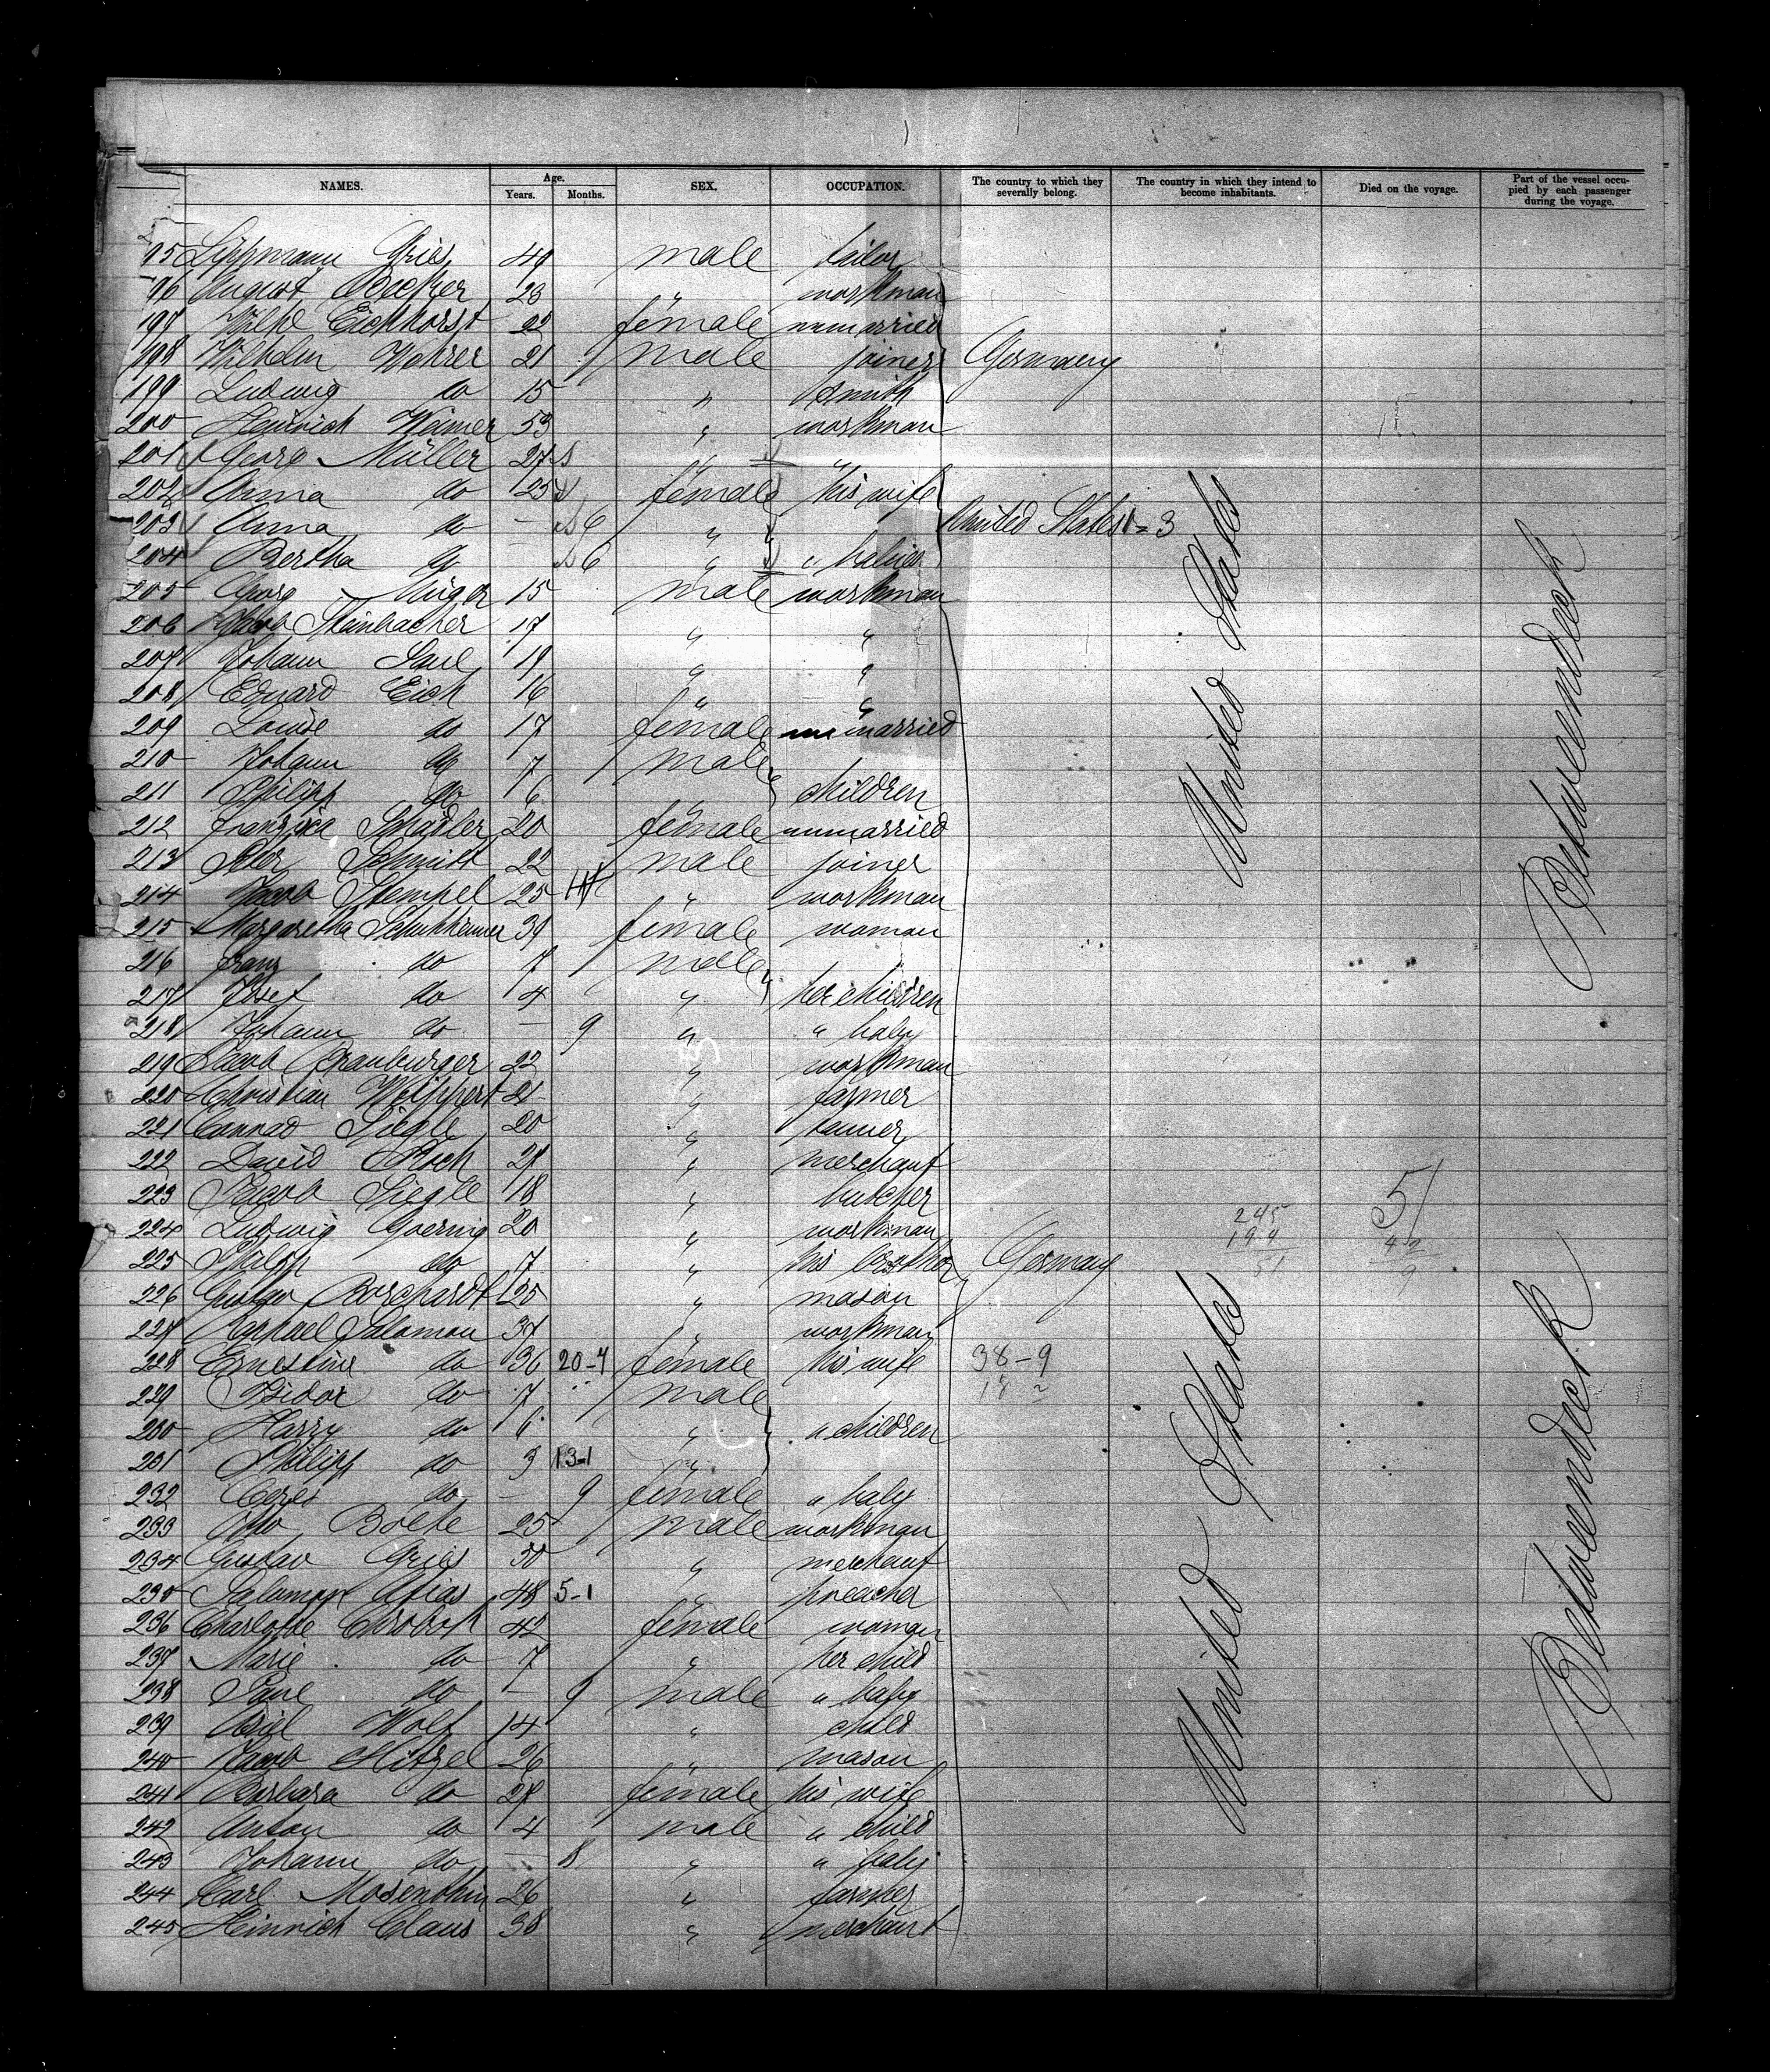 NAMES. Age. Years. Months. SEX. OCCUPATION. The country to which they severally belong. The country in which they intend to become inhabitants. Died on the voyage. Part of the vessel occupied by each passenger during the voyage.
95 Lippmann Gries 49 male tailor
96 August Becker 23 " workman
197 Wilhe Eichhorst 22 female unmarried
198 Wilhelm Wehrer 21 male joiner Germany
199 Ludwig do 15 " smith
200 Heinrich Weimer 53 " workman
201 Georg Müller 27 " "
202 Anna do 25 female his wife
203 Anna do — 6 " United States = 3
204 Bertha do 6 " " babies
205 Georg 15 male workman
206 Jacob Steinbacher 17 " "
207 Johann Paul 19 " "
208 Eduard Eich 16 " "
209 Louise do 17 female unmarried
210 Johann do 7 male
211 Philipp do 6 " children
212 Franziska Schädler 20 female unmarried
213 Peter Schmitt 22 male joiner
214 Jacob Stempel 25 " workman
215 Margaretha 39 female woman
216 Franz do 7 male
217 Josef do 4 " her children
218 Johann do — 9 " " baby
219 Jacob Branburger 22 " workman
220 Christian Weippert 21 " farmer
221 Conrad Siegle 20 " tanner
222 David 27 " merchant
223 Jacob Siegle 18 " butcher 51
224 Ludwig Goernig 20 " workman 245
225 Philipp do 7 " his brother Germany 194 42
51 9
226 Gustav Borchardt 25 " mason
227 Raphael Salomon 37 " workman
228 Ernestine do 36 20-4 female his wife 38-9
229 Isidor do 7 male 18
230 Harry do 6 " " children
231 Philipp do 3 13-1 "
232 Ceres do — 9 female " baby
233 Otto Boelke 25 male workman
234 Gustav Gries 30 " merchant
235 Salomon Arias 48 5-1 " preacher
236 Charlotte Chrobok 42 female woman
237 Marie do 7 " her child
238 Paul do — 9 male " baby
239 Wolf 14 " child
240 Jacob Hitzel 26 " mason
241 Barbara do 27 female his wife
242 Anton do 4 male " child
243 Johann do — 8 " " baby
244 Carl Mosenthin 26 " farmer
245 Heinrich Claus 38 " merchant
United States
United States
Betweendeck
Betweendeck